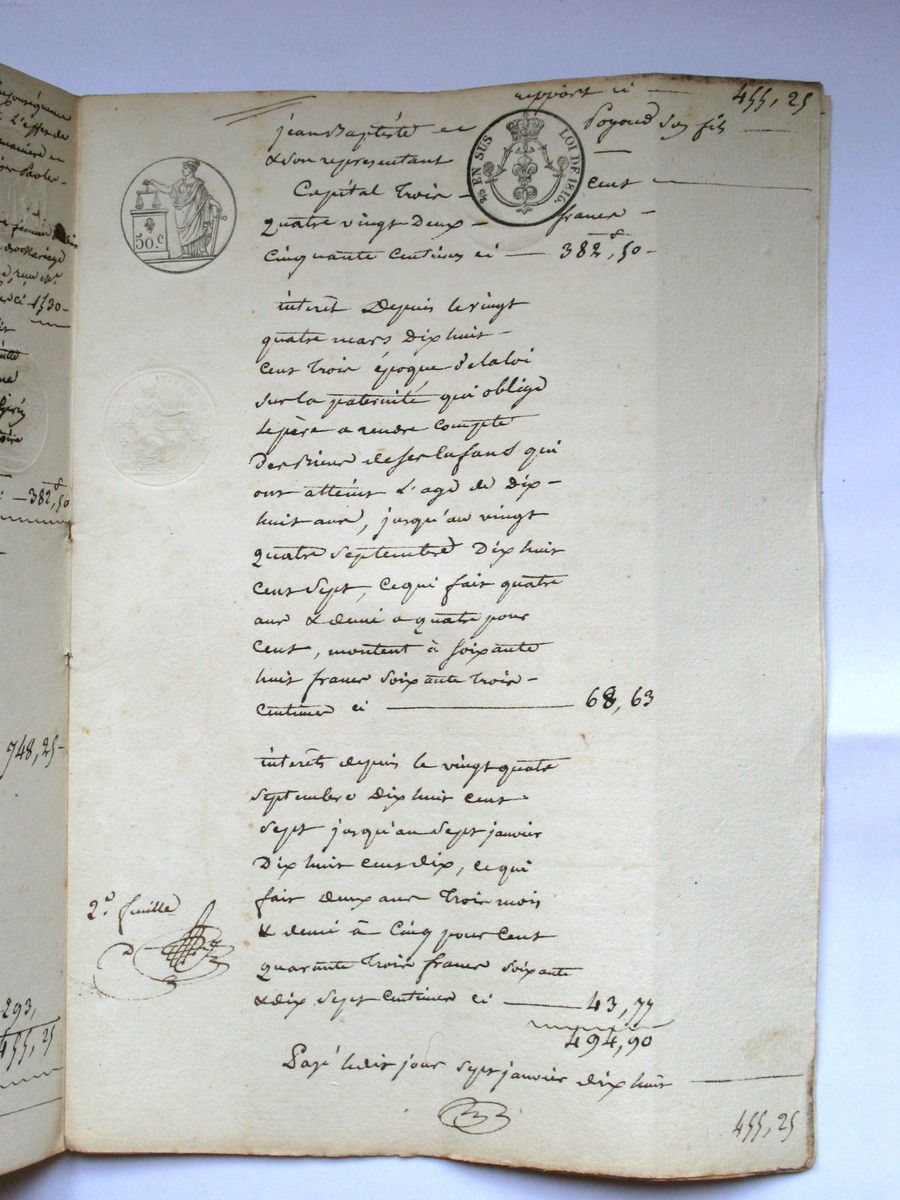 report ci — 455,25
jean Baptiste et Poyond son fils —
& son representant —
Capital Trois — cent —
quatre vingt Deux — francs —
Cinquante Centimes ci — 382f,50 —
interêt Depuis le vingt
quatre mars Dix huit —
Cent Trois époque de la loi
sur la paternité qui oblige
le père a rendre compte
Des biens de ses Enfans qui
ont atteint L'age de Dix —
huit ans, jusqu'au vingt
quatre septembre Dix huit
Cent Sept, ce qui fait quatre
ans & demi a quatre pour
Cent, montent à soixante
huit francs soixante trois —
Centimes ci — 68,63
interêts depuis le vingt quatre
septembre Dix huit cent
sept jusqu'au sept janvier
Dix huit cent dix, ce qui
fait deux ans Trois mois
& demi à Cinq pour Cent
quarante Trois francs soixante
& dix sept Centimes ci — 43,77
494,90
Payé ledit jour sept janvier dix huit —
455,25
2.e feuille
50.c
40 EN SUS
LOI DE 1816.
1530 —
— 382f,50
948,25 —
293,
455,25